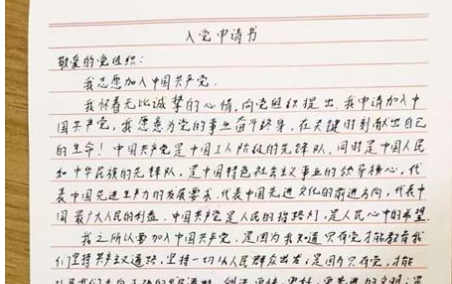 入党申请书
敬爱的党组织：
我志愿加入中国共产党.
我怀着无比诚挚的心情,向党组织提出,我申请加入中
国共产党,我愿意为党的事业奋斗终身,在关键时刻献出自己
的生命!中国共产党是中国工人阶级的先锋队,同时是中国人民
和中华民族的先锋队,是中国特色社会主义事业的领导核心,代
表中国先进生产力的发展要求,代表中国先进文化的前进方向,代表中
国最广大人民的利益.中国共产党是人民的指路灯,是人民心中的希望.
我之所以要加入中国共产党,是因为我知道只有党才能教育我
们坚持共产主义道路,坚持一切从人民群众出发;是因为只有党,才能